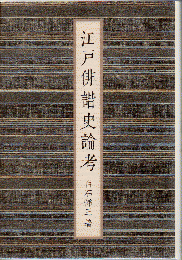 江戸俳諧史論考
白石悌三 著